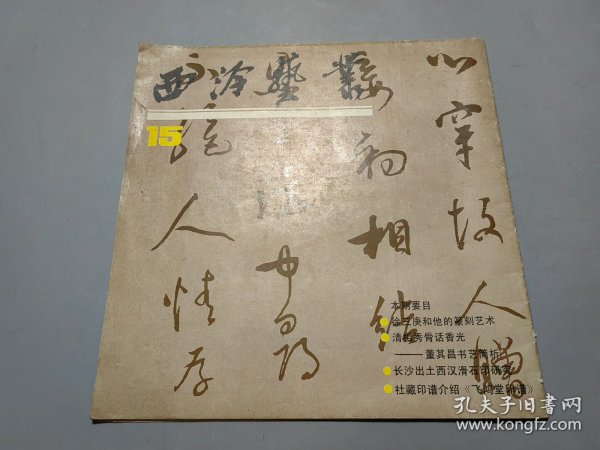 西泠藝叢
15
心穿故人
初相結
人情存
本期要目
徐三庚和他的篆刻艺术
清妍秀骨话香光
——董其昌书艺简析
长沙出土西汉滑石印研究
社藏印谱介绍《飞鸿堂印谱》
孔夫子旧书网
www.kongfz.com